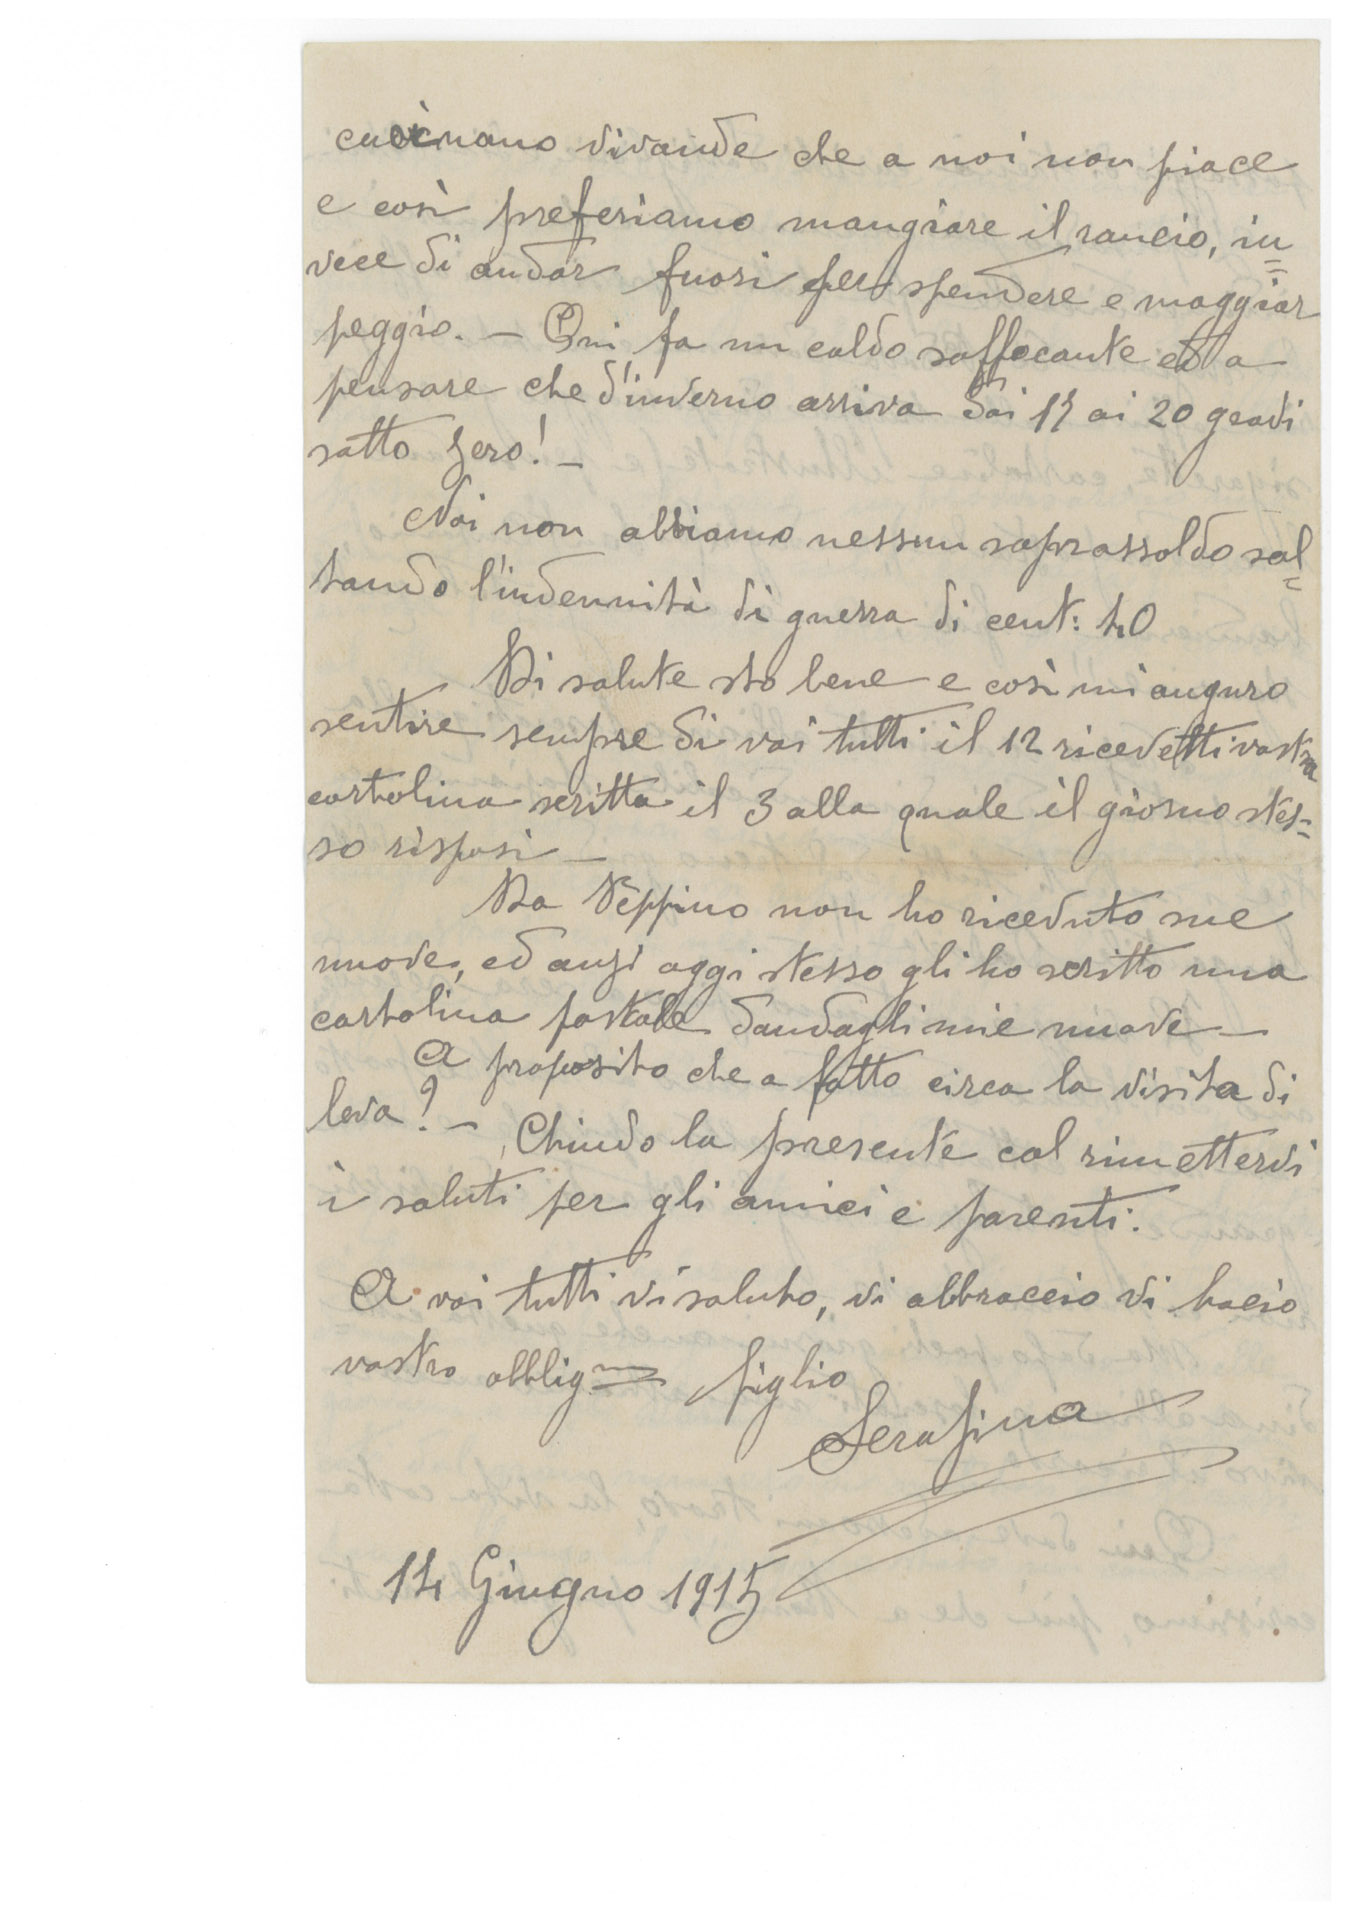 cucinano vivande che a noi non piace
e così preferiamo mangiare il rancio, in=
vece di andar fuori per spendere e maggiar
peggio. - Qui fa un caldo soffocante ed a
pensare che d'inverno arriva dai 15 ai 20 gradi
sotto zero! -
Noi non abbiamo nessun soprassoldo sol=
tando l'indennità di guerra di cent: 40
Di salute sto bene e così mi auguro
sentire sempre di voi tutti il 12 ricevetti vostra
cartolina scritta il 3 alla quale il giorno stes=
so risposi -
Da Peppino non ho ricevuto sue
nuove, ed anzi oggi stesso gli ho scritto una
cartolina postale dandogli mie nuove -
A proposito che a fatto circa la visita di
leva? - Chiudo la presente col rimettervi
i saluti per gli amici e parenti.
A voi tutti vi saluto, vi abbraccio vi bacio
vostro obblig figlio
Serafino
14 Giugno 1915